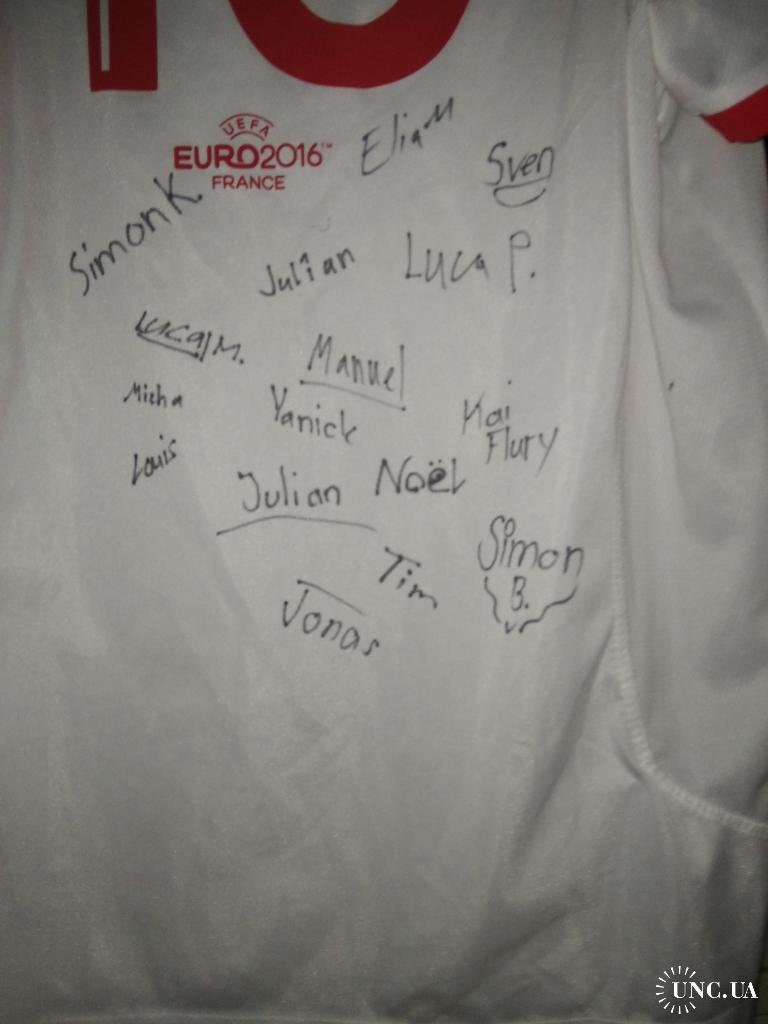 UEFA
EURO2016™
FRANCE
Elia M
Sven
Simon K.
Julian
Luca P.
Luca M.
Manuel
Micha
Yanick
Kai
Flury
Louis
Julian
Noël
Simon
B.
Tim
Jonas
UNC.UA